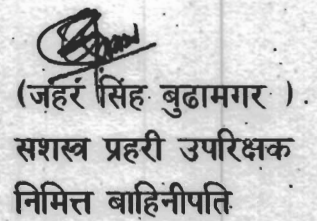 (जहर सिंह बुढामगर ).
सशस्त्र प्रहरी उपरिक्षक
निमित्त बाहिनीपति